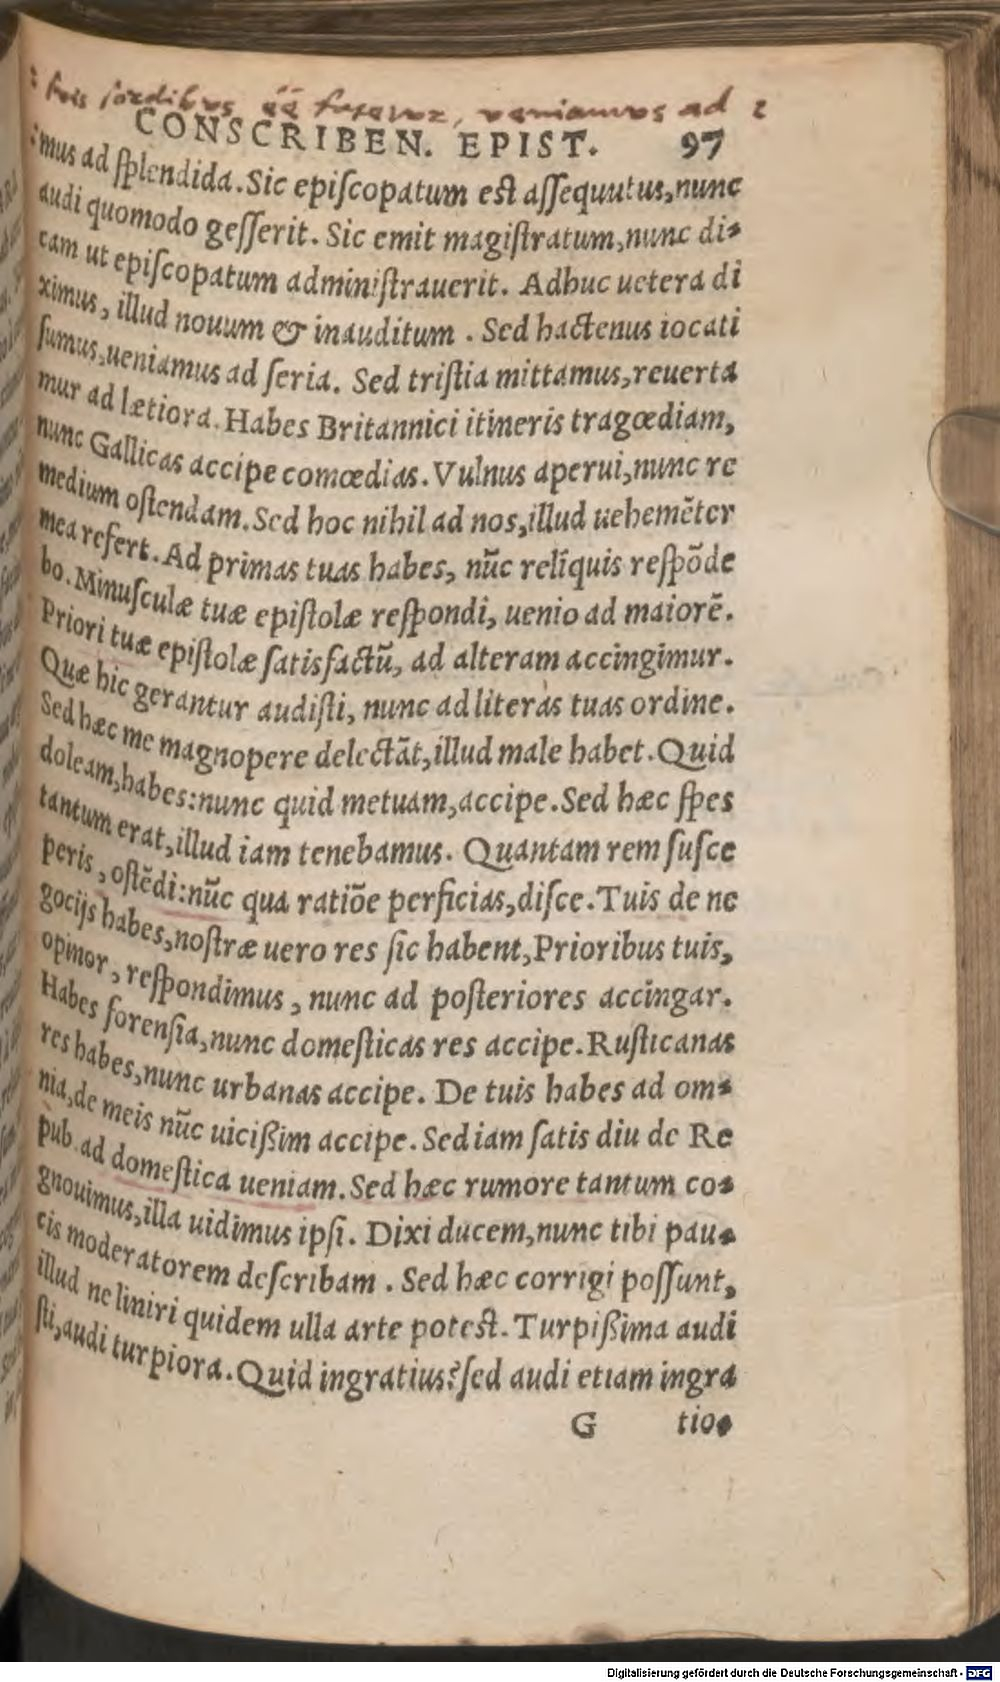 sordibus ēē, veniamus ad
CONSCRIBEN. EPIST. 97
mus ad ſplendida. Sic epiſcopatum eſt aſſequutus, nunc
audi quomodo geſſerit. Sic emit magiſtratum, nunc di-
cam ut epiſcopatum adminiſtrauerit. Adhuc uetera di
ximus, illud nouum & inauditum. Sed hactenus iocati
ſumus, ueniamus ad ſeria. Sed triſtia mittamus, reuerta
mur ad lætiora. Habes Britannici itineris tragœdiam,
nunc Gallicas accipe comœdias. Vulnus aperui, nunc re
medium oſtendam. Sed hoc nihil ad nos, illud uehemēter
mea refert. Ad primas tuas habes, nūc reliquis reſpōde
bo. Minuſculæ tuæ epiſtolæ reſpondi, uenio ad maiorē.
Priori tuæ epiſtolæ ſatisfactū, ad alteram accingimur.
Quæ hic gerantur audiſti, nunc ad literas tuas ordine.
Sed hæc me magnopere delectāt, illud male habet. Quid
doleam, habes: nunc quid metuam, accipe. Sed hæc ſpes
tantum erat, illud iam tenebamus. Quantam rem ſuſce
peris, oſtēdi: nūc qua ratiōe perficias, diſce. Tuis de ne
gocijs habes, noſtræ uero res ſic habent, Prioribus tuis,
opinor, reſpondimus, nunc ad poſteriores accingar.
Habes forenſia, nunc domeſticas res accipe. Ruſticanas
res habes, nunc urbanas accipe. De tuis habes ad om-
nia, de meis nūc uiciſſim accipe. Sed iam ſatis diu de Re
pub. ad domeſtica ueniam. Sed hæc rumore tantum co-
gnouimus, illa uidimus ipſi. Dixi ducem, nunc tibi pau-
cis moderatorem deſcribam. Sed hæc corrigi poſſunt,
illud ne liniri quidem ulla arte poteſt. Turpißima audi
ſti, audi turpiora. Quid ingratius? ſed audi etiam ingra
G tio-
Digitalisierung gefördert durch die Deutsche Forschungsgemeinschaft - DFG